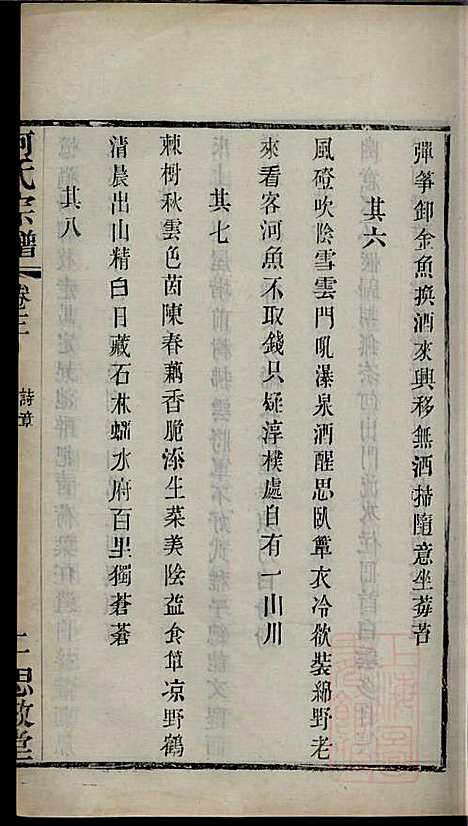 彈箏卸金魚換酒來興移無洒掃隨意坐莓苔
其六
風磴吹陰雪雲門吼瀑泉酒醒思臥簟衣冷欲裝綿野老
來看客河魚不取錢只疑淳樸處自有一山川
其七
棘樹秋雲色茵陳春藕香脆添生菜美陰益食簞凉野鶴
清晨出山精白日藏石林蟠水府百里獨蒼蒼
其八
何氏宗譜
卷三
詩章
思敬堂